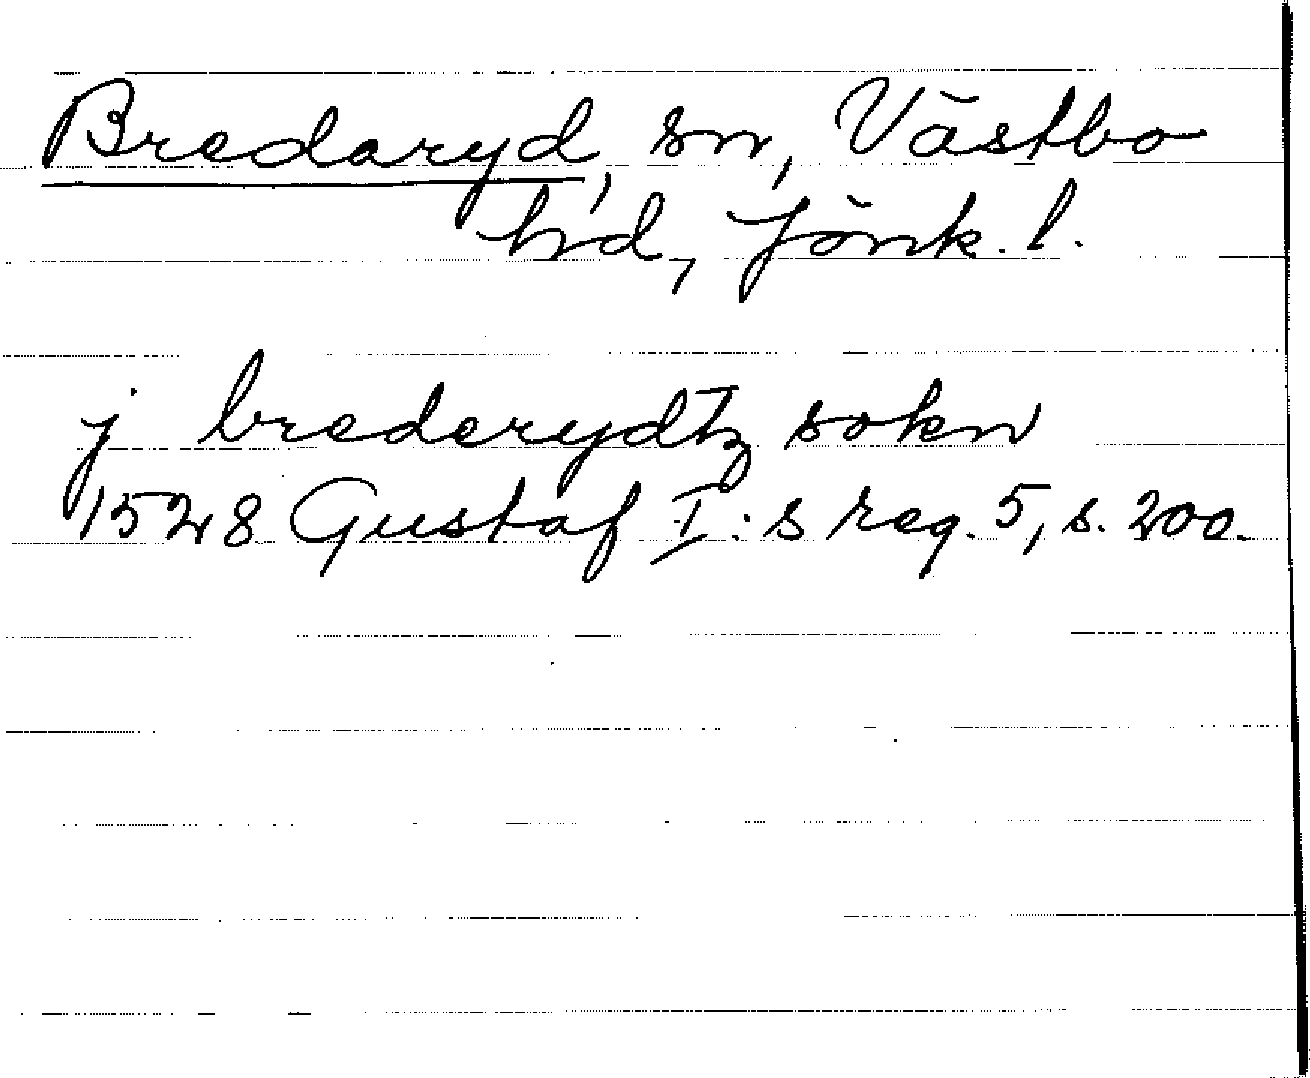 Bredaryd, sn, Västbo
hd, Jönk. l.
j brederydtz sokn
1528 Gustaf I:s reg. 5, s. 200.